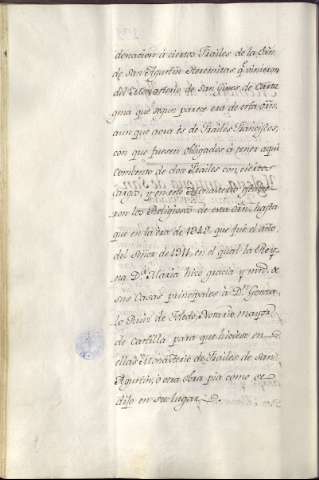 donacion à ciertos Frailes de la Orn.
de San Agustin Heremitas, q.e vinieron
del Monasterio de San Gines de Carta
gena que segun parece era de esta Orn.
aunque aora es de Frailes Franciscos,
con que fuesen obligados à tener aqui
Combento de dos Frailes con ciertos
cargos, y en este Monasterio
ron los Religiosos de esta Orn. hasta
que en la Era de 1349. que fué el año
del Señor de 1311, en el qual la Rey-
na D.a Maria hizo gracia y mrd. de
sus Casas principales à D.n Gonza-
lo Ruiz de Toledo, Notario mayor
de Castilla para que hiciese en
ellas Monasterio de Frailes de San
Agustin, ò otra obra pia como se
dijo en su lugar.